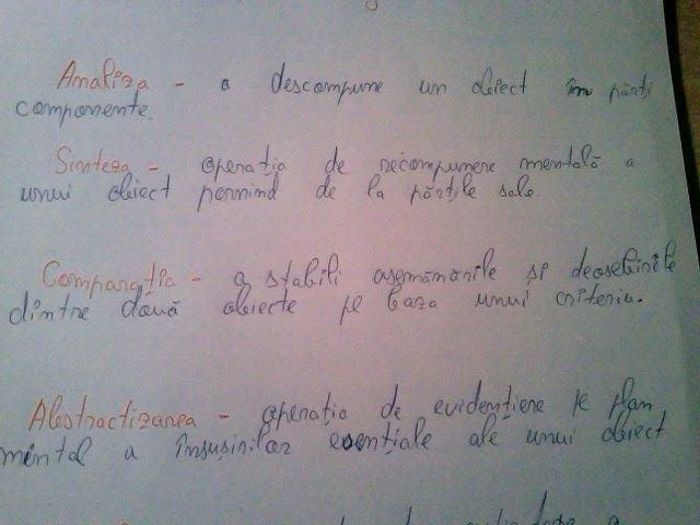 Analiza - a descompune un obiect în părți
componente.
Sinteza - operația de recompunere mentală a
unui obiect pornind de la părțile sale.
Comparația - a stabili asemănările și deosebirile
dintre două obiecte pe baza unui criteriu.
Abstractizarea - operația de evidențiere pe plan
mintal a însușirilor esențiale ale unui obiect